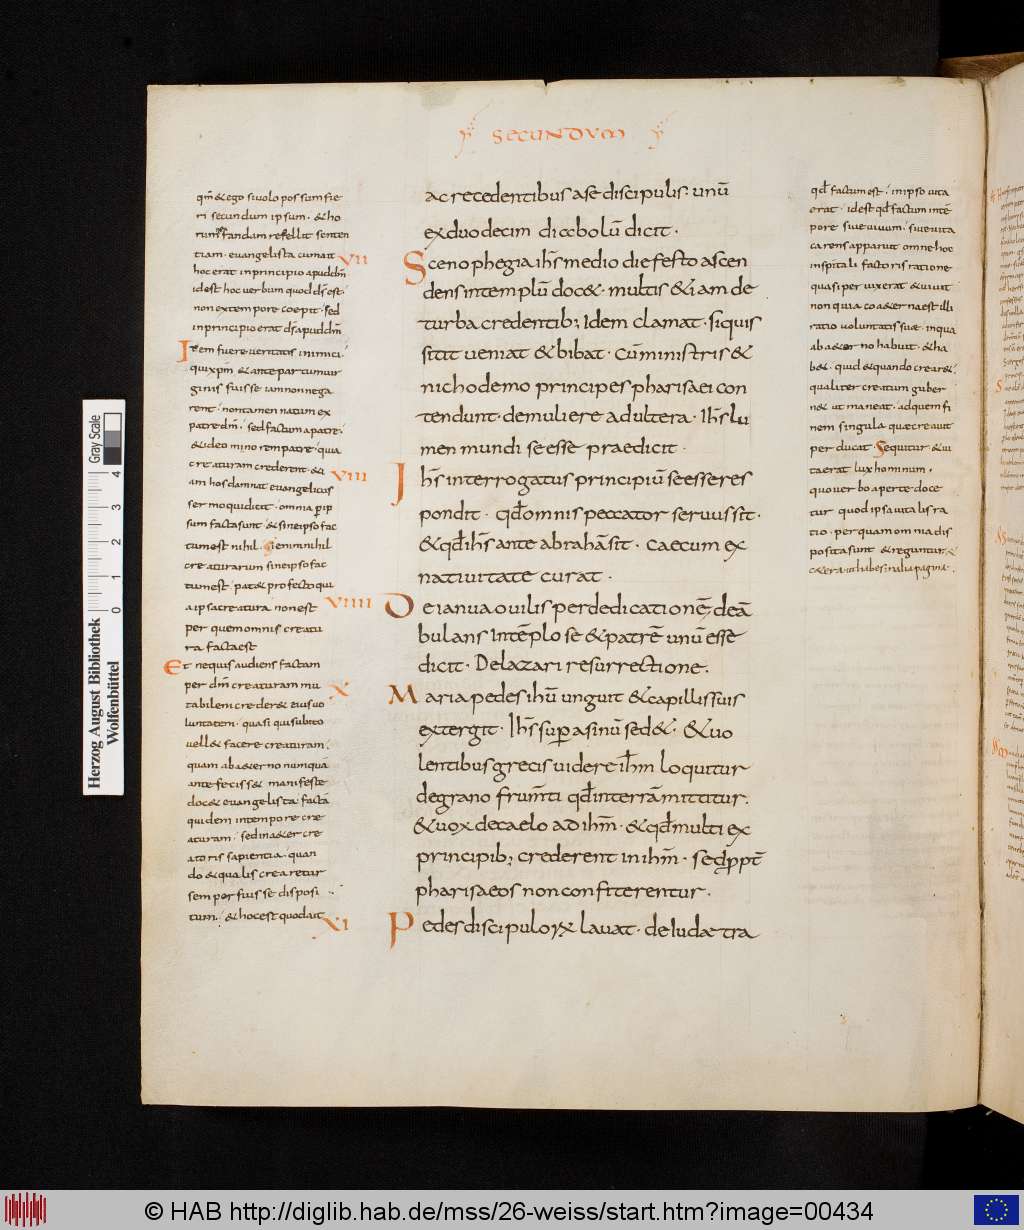 SECUNDUM
qm̄ & ego si uolo possum fie
ri secundum ipsum · & ho
rum nefandam refellit senten
tiam · euangelista cum ait
hoc erat in principio apud dm̄
id est hoc uerbum quod dś est ·
non ex tempore coepit · sed
in principio erat dś apud dm̄
Item fuere ueritatis inimici ·
qui xpm̄ & ante partum uir
ginis fuisse iam non nega
rent · non tamen natum ex
patre dm̄ · sed factum a patre ·
& ideo minorem patre · quia
creaturam crederent · & &i
am hos damnat euangelicus
sermo qui dicit · omnia p ip
sum facta sunt & sine ipso fac
tum est nihil · Si enim nihil
creaturarum sine ipso fac
tum est · pat& profecto qui
a ipsa creatura non est
per quem omnis creatu
ra facta est
Et ne quis audiens factam
per dm̄ creaturam mu
tabilem creder& eius uo
luntatem · quasi qui subito
uell& facere creaturam ·
quam ab a&erno numquā
ante feciss& manifeste
doc& euangelista · factā
quidem in tempore cre
aturam · sed in a&erna cre
atoris sapientia · quan
do & qualis crearetur
semper fuisse disposi
tum · & hoc est quod ait
VII
VIII
VIIII
X
XI
ac recedentibus a se discipulis · unū
ex duodecim diabolū dicit ·
Scenophegia ih̄s medio die festo ascen
dens in templū doc& · multis &iam de
turba credentib; Idem clamat · si quis
sitit ueniat & bibat · Cū ministris &
nichodemo principes pharisaei con
tendunt · de muliere adultera · Ih̄s lu
men mundi se esse praedicit ·
Ih̄s interrogatus principiū se esse res
pondit · qd̄ omnis peccator seruus sit ·
& qd̄ ih̄s ante abrahā sit · caecum ex
natiuitate curat ·
De ianua ouilis per dedicationē; deā
bulans In tēplo se & patrē unū esse
dicit · De lazari resurrectione ·
Maria pedes ihū unguit & capillis suis
extergit · Ih̄s sup asinū sed& · & uo
lentibus grecis uidere ih̄m loquitur
de grano frum̄ti qd̄ in terrā mittitur ·
& uox de caelo ad ih̄m · & qd̄ multi ex
principib; crederent in ih̄m · sed ppt̄
pharisaeos non confiterentur ·
Pedes discipuloꝝ lauat · de iudae tra
qd̄ factum est · in ipso uita
erat · id est qd̄ factum in tē
pore siue uiuum · siue uita
carens apparuit omne hoc
in spitali factoris ratione
quasi per uixerat & uiuit
non quia coa&erna est illi
ratio uoluntatis suae · in qua
ab a&erno habuit · & ha
b& · quid & quando crear& ·
qualiter creatum guber
n& ut maneat · ad quem fi
nem singula quae creauit
perducat · Sequitur & ui
ta erat lux hominum ·
quo uerbo aperte doce
tur quod ipsa uitalis ra
tio · per quam omnia dis
posita sunt & reguntur · &
© HAB http://diglib.hab.de/mss/26-weiss/start.htm?image=00434
Herzog August Bibliothek
Wolfenbüttel
0 1 2 3 4
Gray Scale